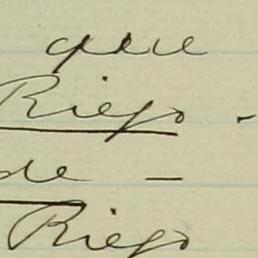 que
Riego -
de —
Riego